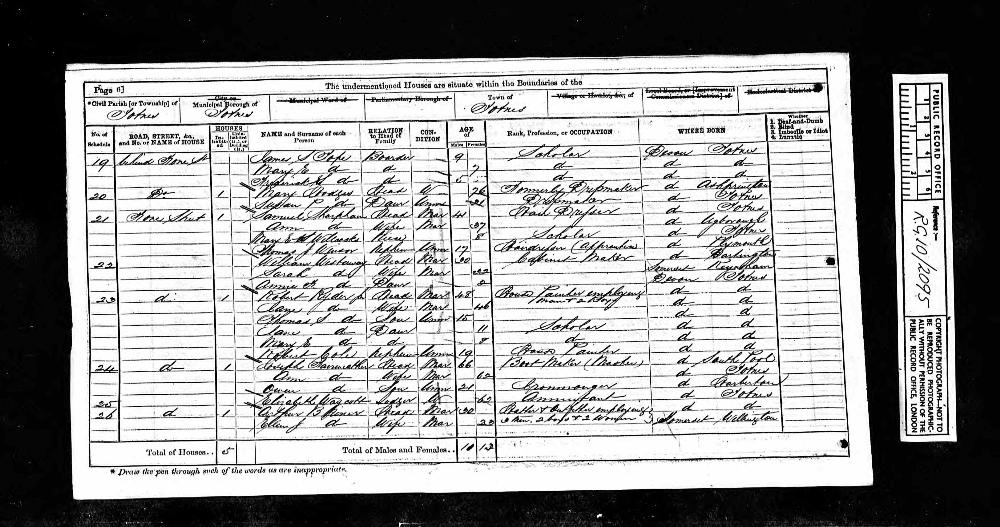 Page 6]
The undermentioned Houses are situate within the Boundaries of the
*Civil Parish [or Township] of
Totnes
City or
Municipal Borough of
Totnes
Municipal Ward of
Parliamentary Borough of
Town of
Totnes
Village or Hamlet, &c., of
Local Board, or [Improvement Commissioners District] of
Ecclesiastical District of
No. of Schedule
ROAD, STREET, &c., and No. or NAME of HOUSE
HOUSES
NAME and Surname of each Person
RELATION to Head of Family
CON-DITION
AGE of
Males
Females
Rank, Profession, or OCCUPATION
WHERE BORN
Whether
1. Deaf-and-Dumb
2. Blind
3. Imbecile or Idiot
4. Lunatic
19 behind Fore St James S Pope Boarder 9 Scholar Devon Totnes
Mary E do do 7 do do do
Frederick do do 5 do do do
20 Do 1 Mary Hodges Head W 76 Formerly Dressmaker do Ashprington
Susan do Daur Unm Dressmaker do Totnes
21 Fore Street 1 Samuel Head Mar 41 Hair Dresser do Totnes
Ann do Wife Mar 37 do Ugborough
Mary E Niece 8 Scholar do Totnes
Thomas Unm 17 Hairdresser (Apprentice) do Plymouth
22 William Head Mar 30 Cabinet Maker do Dartington
Sarah do Wife Mar 32 Somerset
Annie do Daur 2 Devon Totnes
23 do 1 Robert Ryder Head Mar 48 House Painter employing do do
Jane do Wife Mar 46 do do
Thomas S do Son Unm 15 do do
Jane do Daur 11 Scholar do do
Mary E do do 8 do do do
Robert Cole Nephew Unm 19 House Painter do do
24 do 1 Joseph Head Mar 66 Boot Maker (Master) do South Pool
Ann do Wife Mar 62 do Totnes
Owen do Son Unm 21 Ironmonger do Harberton
25 Elizabeth Lodger W 62 Annuitant do Totnes
26 do 1 Arthur B Head Mar 30 Hatter & Outfitter employing do do
Ellen J do Wife Mar 3 Men, 2 boys & 2 Women Somerset Wellington
Total of Houses.. 5
Total of Males and Females.. 10 13
* Draw the pen through such of the words as are inappropriate.
PUBLIC RECORD OFFICE
1 2 3 4 5 6
Reference:-
RG10/2095
COPYRIGHT PHOTOGRAPH - NOT TO BE REPRODUCED PHOTOGRAPHICALLY WITHOUT PERMISSION OF THE PUBLIC RECORD OFFICE, LONDON